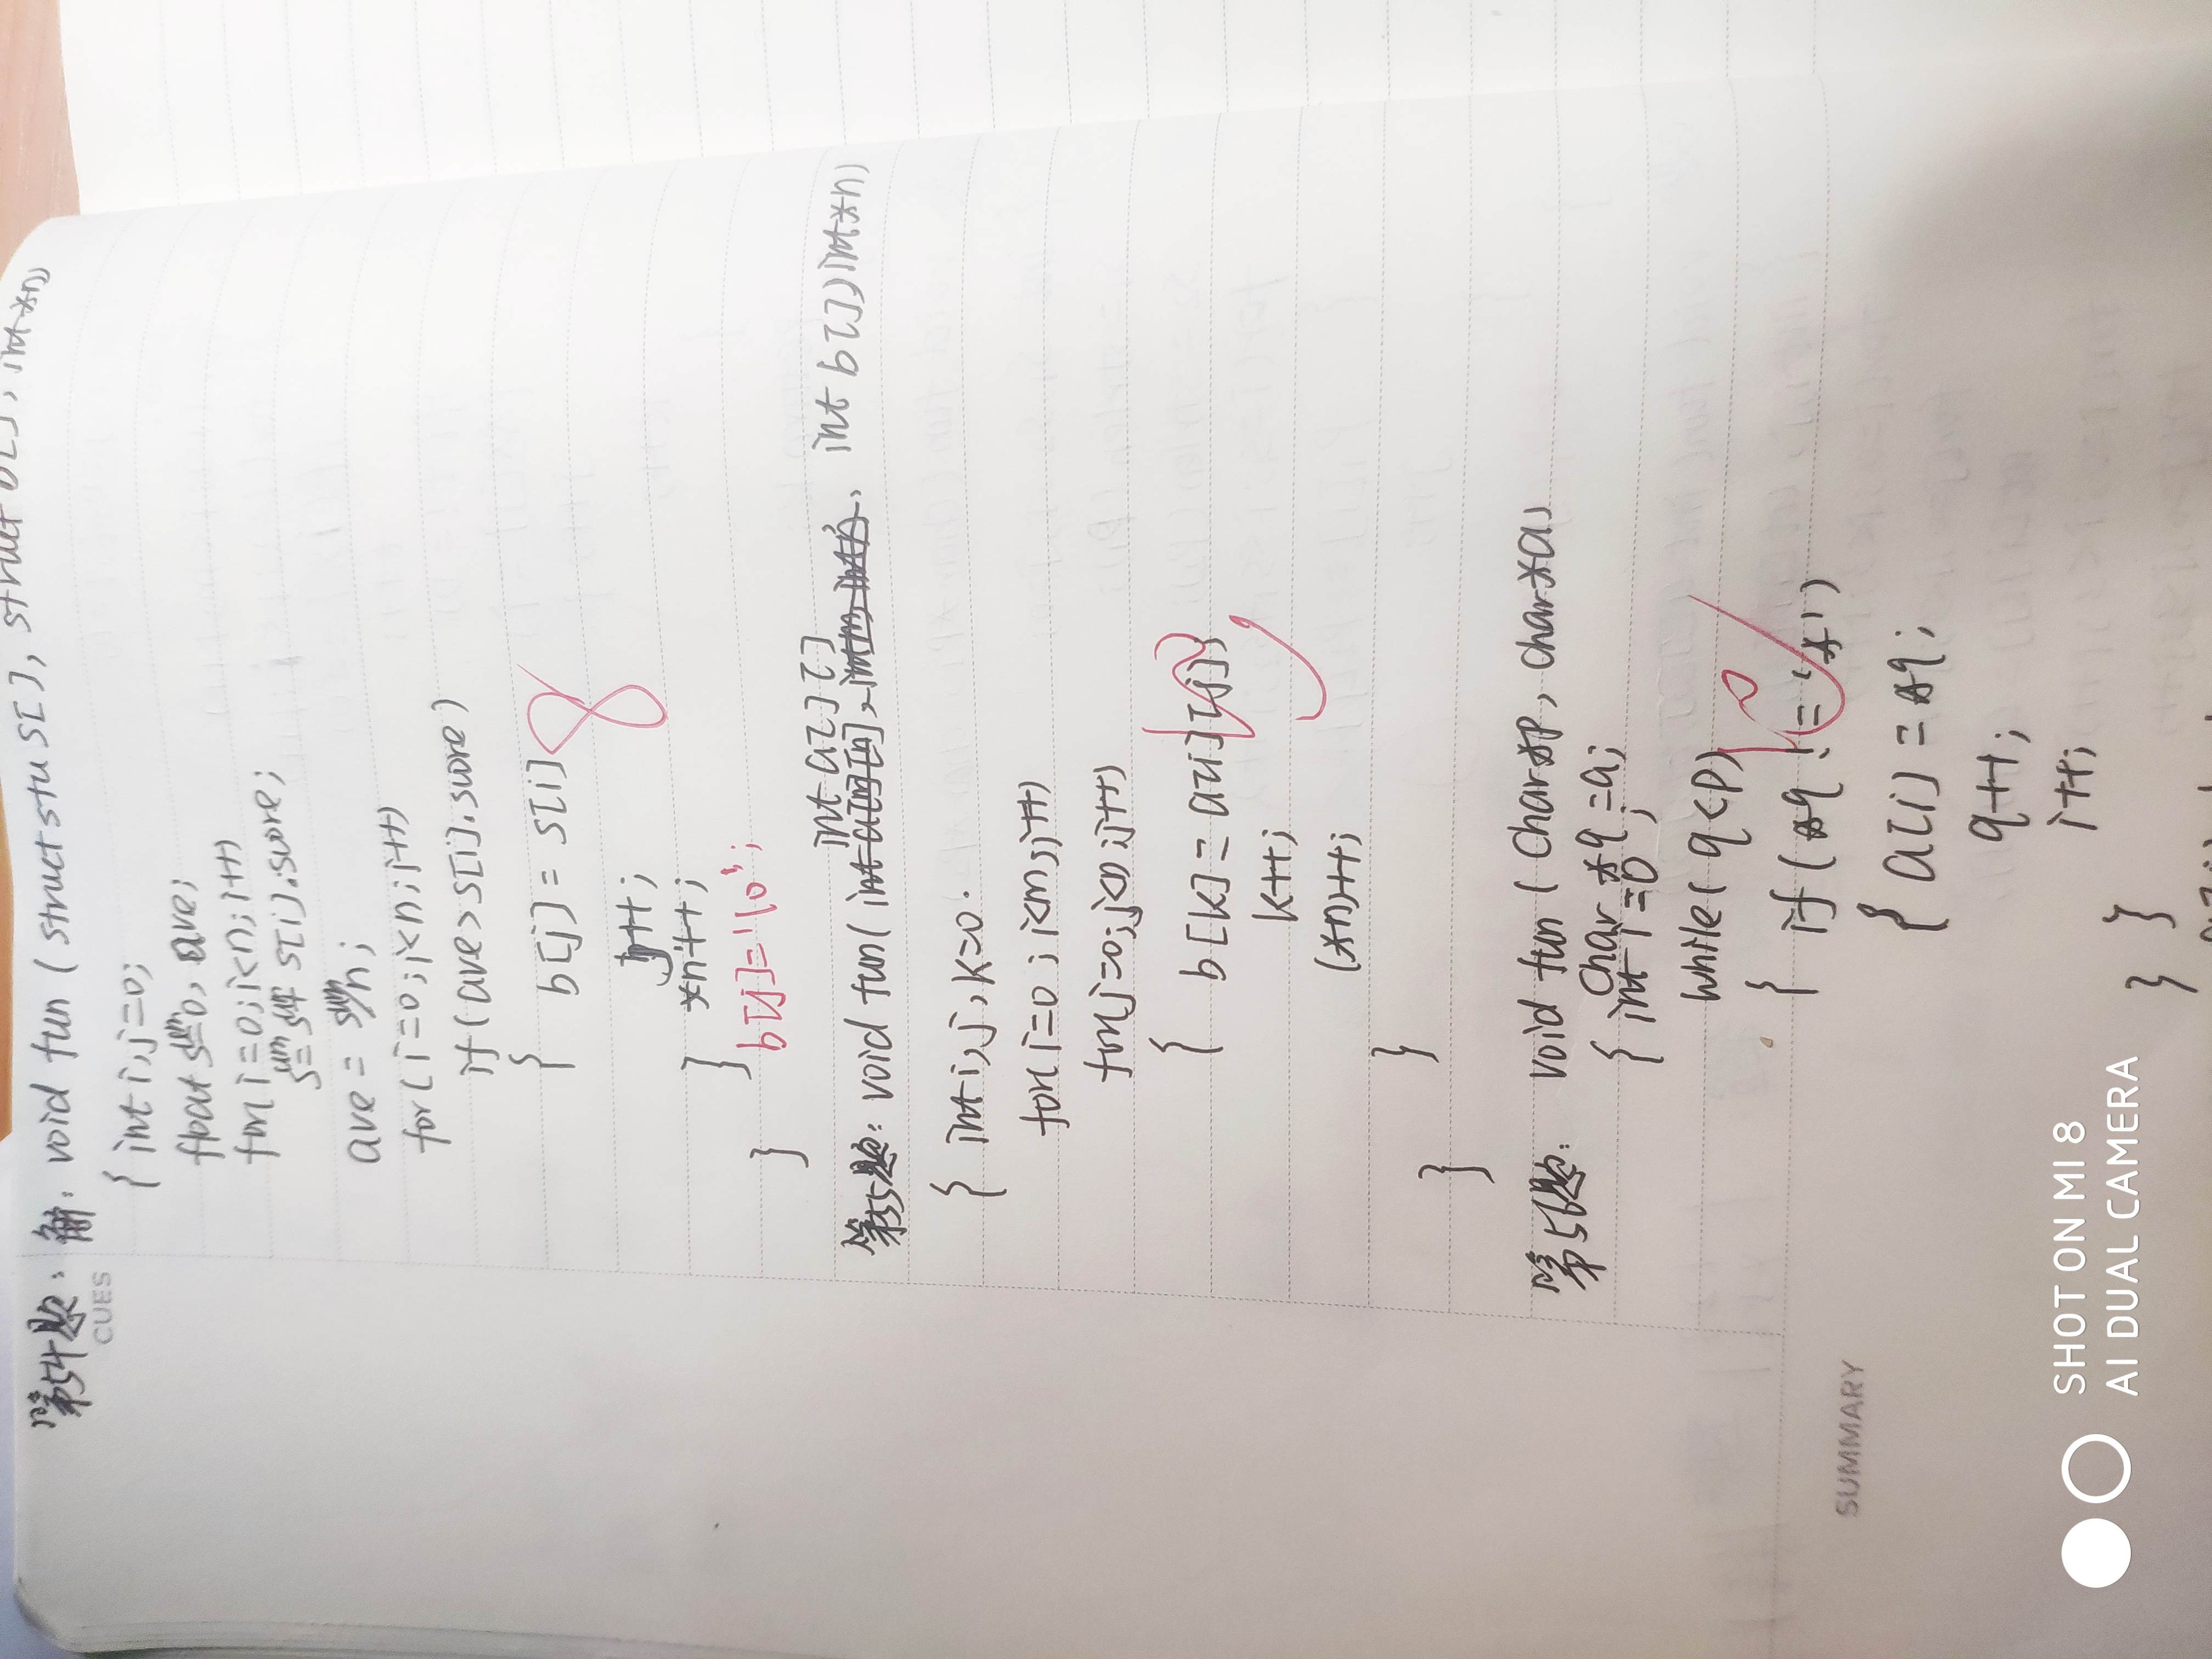 第54题: 解: void fun ( struct stu S[], struct b[], int *n)
CUES
{ int i, j=0;
float sum=0, ave;
for( i=0; i<n; i++)
sum= sum+ s[i].score;
ave = sum/n;
for( i=0; i<n; i++)
if( ave > s[i].score )
{ b[j] = s[i]
8
j++;
*n++;
}
b[j]='\0';
}
int a[][]
第55题: void fun( int a[m][n], int m, int n, int b[]) int *n)
{ int i, j, k=0.
for( i=0; i<m; i++)
for( j=0; j<n; j++)
{ b[k] = a[i][j];
10
k++;
(*n)++;
}
}
第56题: void fun ( char *p, char *a)
char *q =a;
{ int i =0 ;
while( q<p)
10
{ if( *q != '*')
{ a[i] = *q;
q++;
i++;
} }
SUMMARY
SHOT ON MI 8
AI DUAL CAMERA